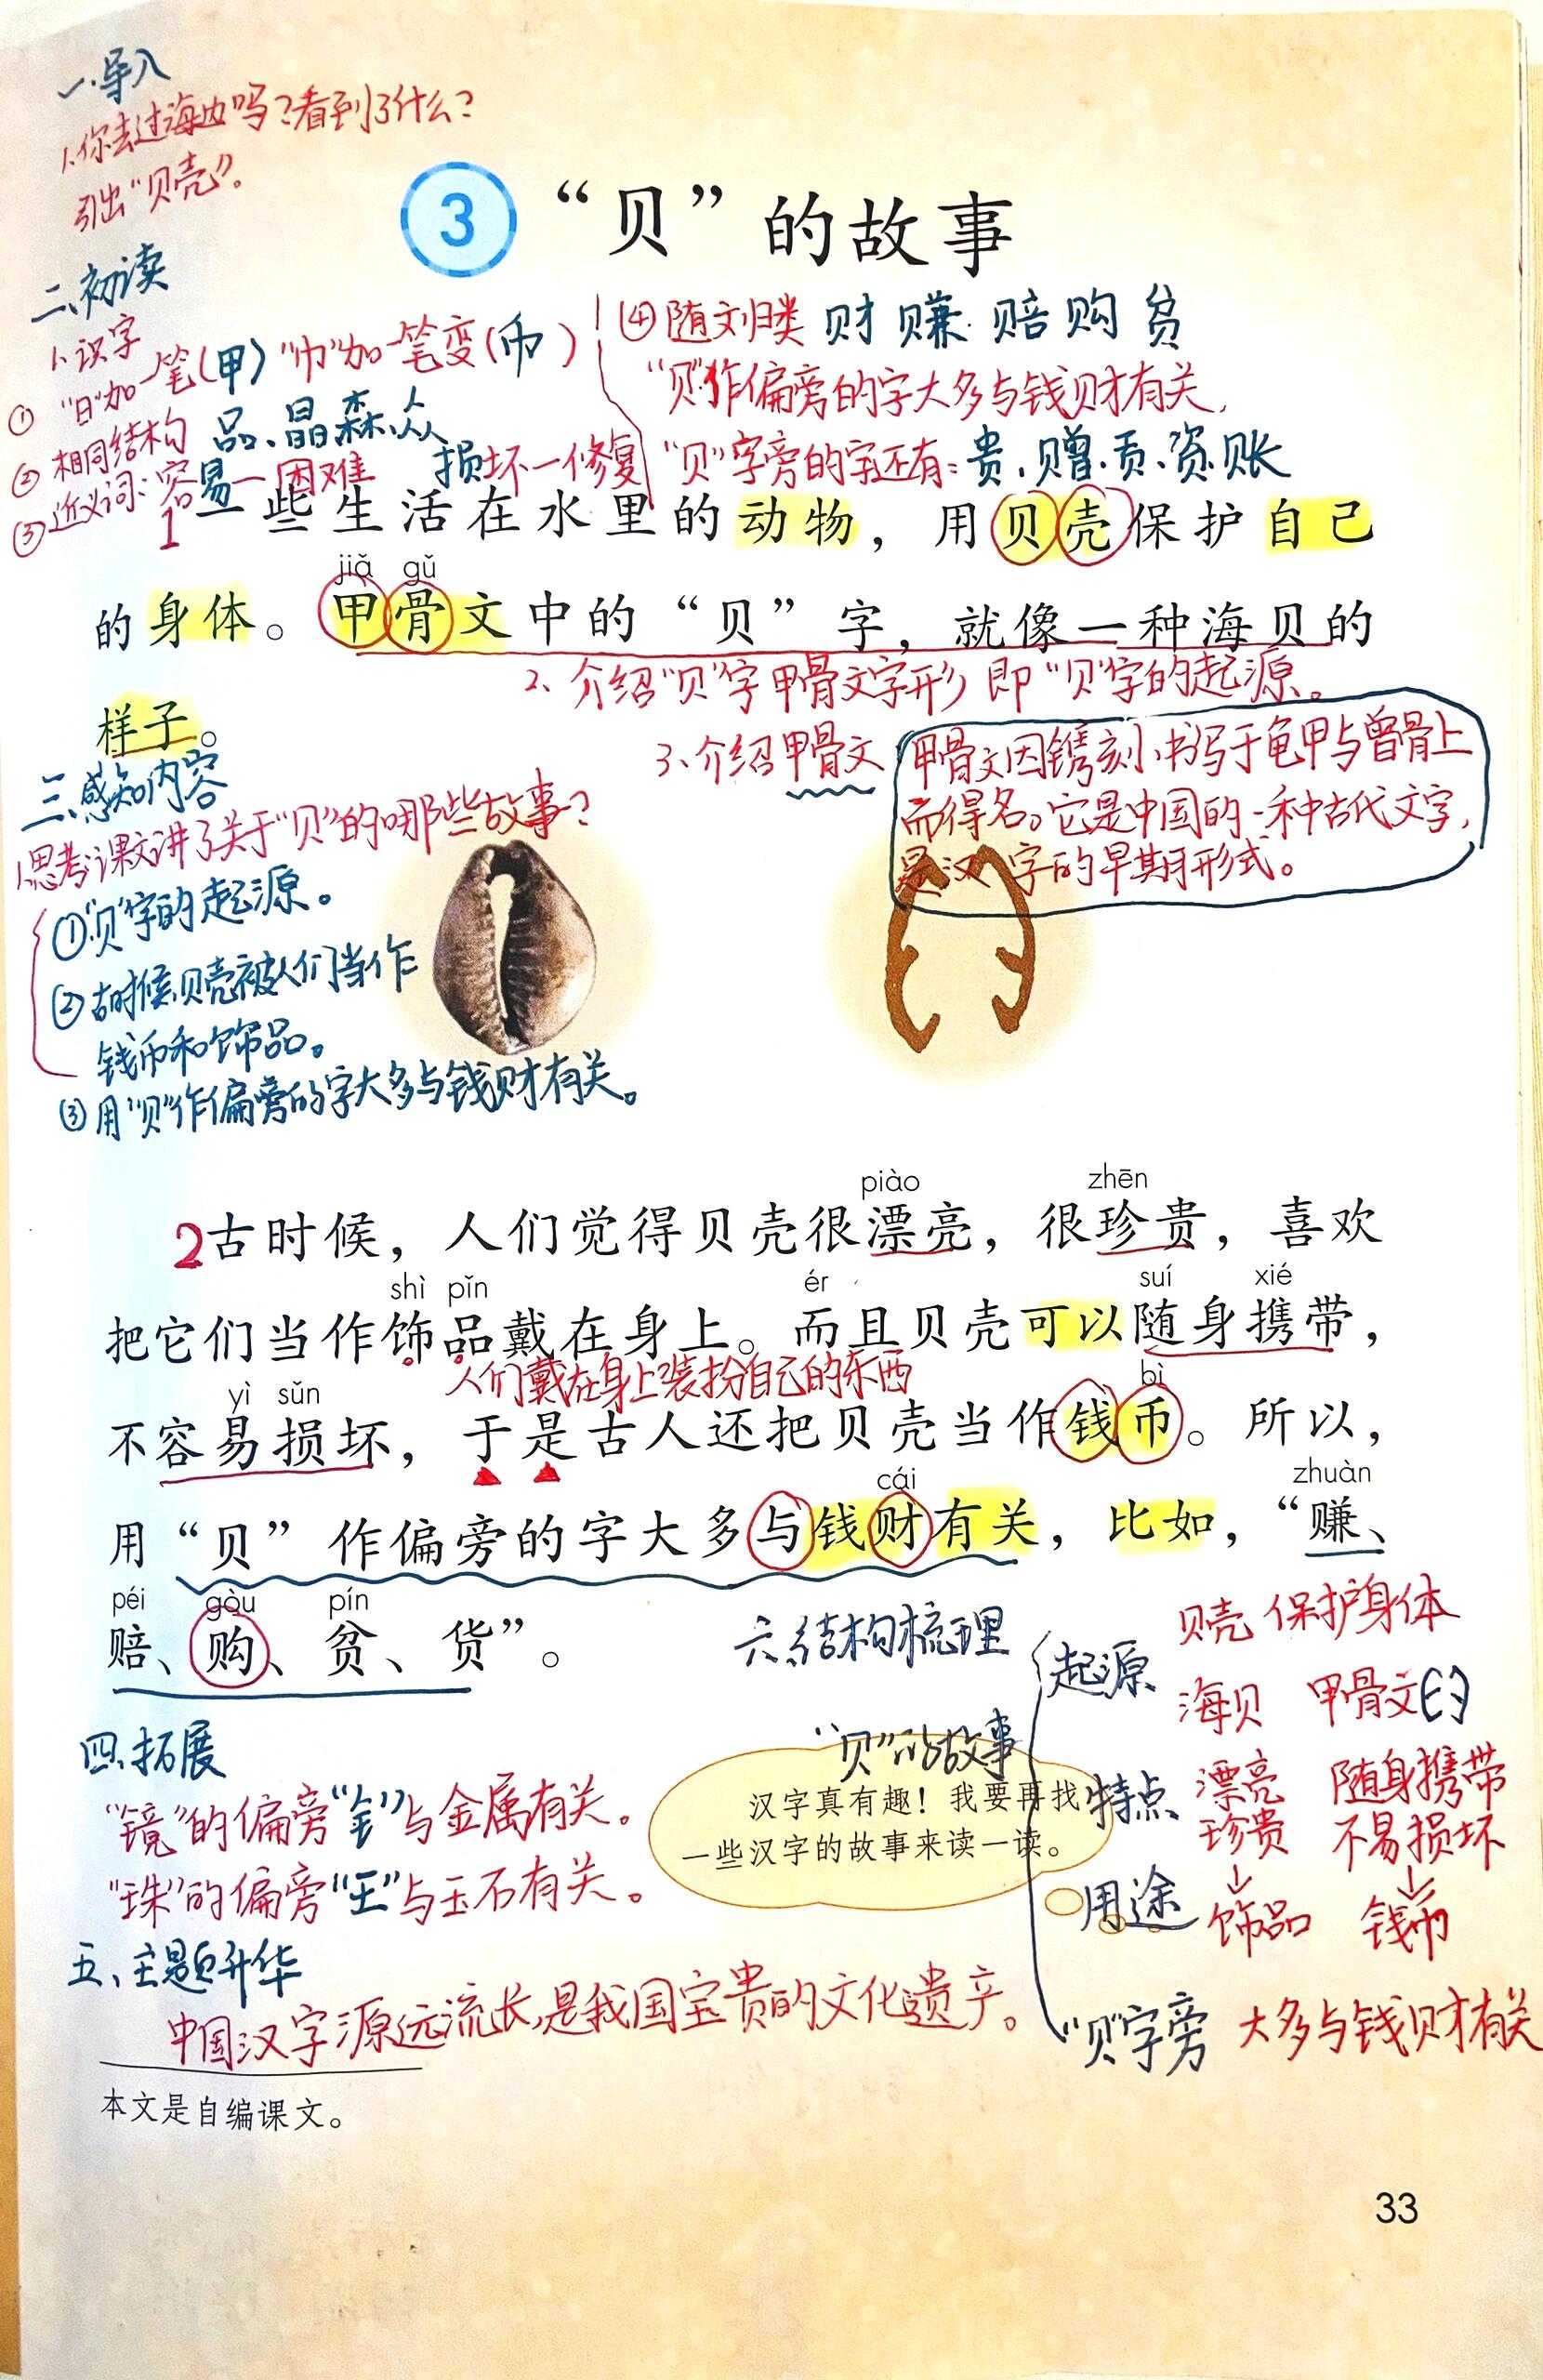 一.导入
1.你去过海边吗?看到了什么?
引出“贝壳”。
3 “贝”的故事
二、初读
1、识字
① “日”加一笔(甲) “巾”加一笔变(币)
② 相同结构 品、晶、森、众
③ 近义词:容易—困难 损坏—修复
④ 随文归类 财 赚 赔 购 贫
“贝”作偏旁的字大多与钱财有关,
“贝”字旁的字还有:贵、赠、贡、资、账
1 一些生活在水里的动物，用贝壳保护自己
jiǎ gǔ
的身体。甲骨文中的“贝”字，就像一种海贝的
2、介绍“贝”字甲骨文字形,即“贝”字的起源。
样子。
3、介绍甲骨文
甲骨文因镌刻、书写于龟甲与兽骨上
而得名。它是中国的一种古代文字,
是汉字的早期形式。
三、感知内容
1.思考:课文讲了关于“贝”的哪些故事?
①“贝”字的起源。
②古时候,贝壳被人们当作
钱币和饰品。
③用“贝”作偏旁的字大多与钱财有关。
piào zhēn
2 古时候，人们觉得贝壳很漂亮，很珍贵，喜欢
shì pǐn ér suí xié
把它们当作饰品戴在身上。而且贝壳可以随身携带，
人们戴在身上装扮自己的东西
yì sǔn bì
不容易损坏，于是古人还把贝壳当作钱币。所以，
cái zhuàn
用“贝”作偏旁的字大多与钱财有关，比如，“赚、
péi gòu pín
赔、购、贫、货”。
四、拓展
“镜”的偏旁“钅”与金属有关。
“珠”的偏旁“王”与玉石有关。
五、主题升华
中国汉字源远流长,是我国宝贵的文化遗产。
汉字真有趣！我要再找
一些汉字的故事来读一读。
六、结构梳理
“贝”的故事
起源 贝壳 保护身体
海贝 甲骨文
特点 漂亮 随身携带
珍贵 不易损坏
↓ ↓
用途 饰品 钱币
“贝”字旁 大多与钱财有关
本文是自编课文。
33